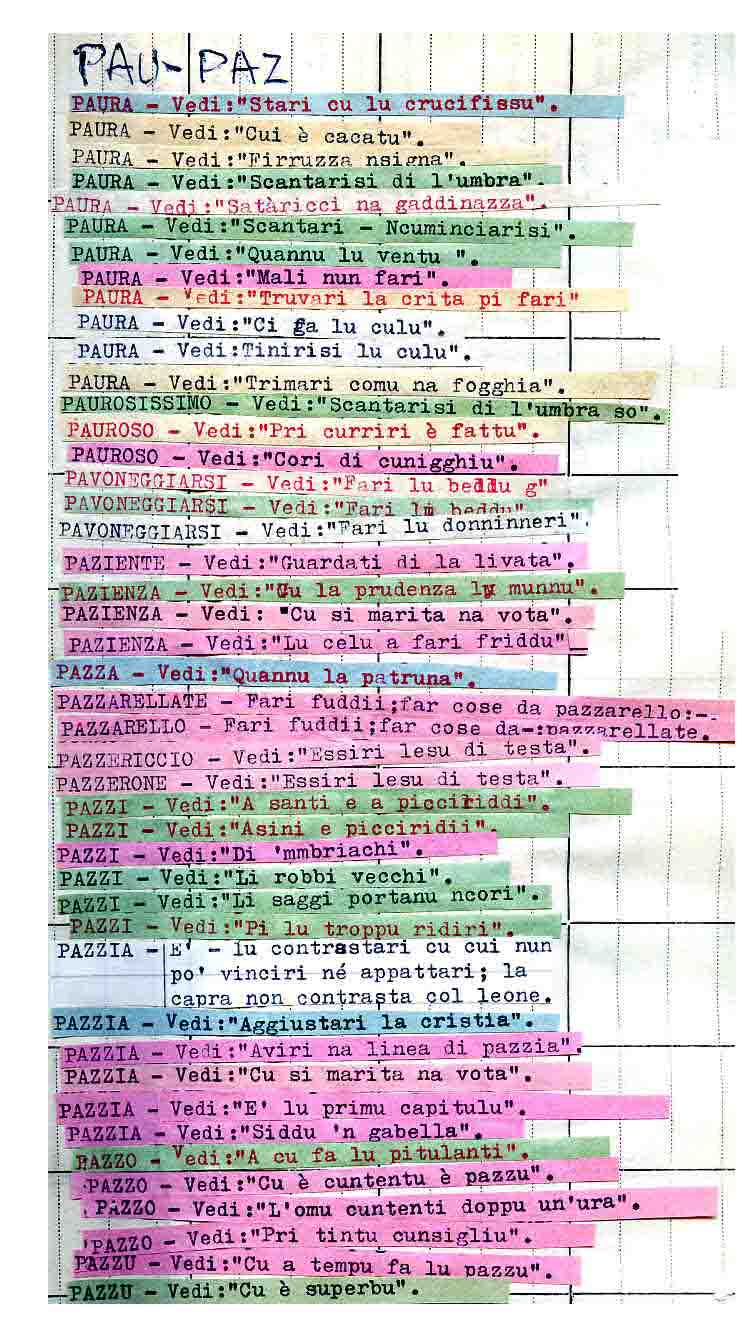 PAU-PAZ
PAURA - Vedi:"Stari cu lu crucifissu".
PAURA - Vedi:"Cui è cacatu".
PAURA - Vedi:"Firruzza nsigna".
PAURA - Vedi:"Scantarisi di l'umbra".
PAURA - Vedi:"Satàricci na gaddinazza".
PAURA - Vedi:"Scantari - Ncuminciarisi".
PAURA - Vedi:"Quannu lu ventu ".
PAURA - Vedi:"Mali nun fari".
PAURA - Vedi:"Truvari la crita pi fari"
PAURA - Vedi:"Ci fa lu culu".
PAURA - Vedi:Tinirisi lu culu".
PAURA - Vedi:"Trimari comu na fogghia".
PAUROSISSIMO - Vedi:"Scantarisi di l'umbra so".
PAUROSO - Vedi:"Pri curriri è fattu".
PAUROSO - Vedi:"Cori di cunigghiu".
PAVONEGGIARSI - Vedi:"Fari lu beddu g"
PAVONEGGIARSI - Vedi:"Fari lu beddu"
PAVONEGGIARSI - Vedi:"Fari lu donninneri".
PAZIENTE - Vedi:"Guardati di la livata".
PAZIENZA - Vedi:"Cu la prudenza lu munnu".
PAZIENZA - Vedi: "Cu si marita na vota".
PAZIENZA - Vedi:"Lu celu a fari friddu"
PAZZA - Vedi:"Quannu la patruna".
PAZZARELLATE - Fari fuddii;far cose da pazzarello:-.
PAZZARELLO - Fari fuddii;far cose da-:pazzarellate.
PAZZERICCIO - Vedi:"Essiri lesu di testa".
PAZZERONE - Vedi:"Essiri lesu di testa".
PAZZI - Vedi:"A santi e a picciriddi".
PAZZI - Vedi:"Asini e picciridii".
PAZZI - Vedi:"Di 'mmbriachi".
PAZZI - Vedi:"Li robbi vecchi".
PAZZI - Vedi:"Li saggi portanu ncori".
PAZZI - Vedi:"Pi lu troppu ridiri".
PAZZIA - E' - lu contrastari cu cui nun
po' vinciri né appattari; la
capra non contrasta col leone.
PAZZIA - Vedi:"Aggiustari la cristia".
PAZZIA - Vedi:"Aviri na linea di pazzia".
PAZZIA - Vedi:"Cu si marita na vota".
PAZZIA - Vedi:"E' lu primu capitulu".
PAZZIA - Vedi:"Siddu 'n gabella".
PAZZO - Vedi:"A cu fa lu pitulanti".
PAZZO - Vedi:"Cu è cuntentu è pazzu".
PAZZO - Vedi:"L'omu cuntenti doppu un'ura".
PAZZO - Vedi:"Pri tintu cunsigliu".
PAZZU - Vedi:"Cu a tempu fa lu pazzu".
PAZZU - Vedi:"Cu è superbu".